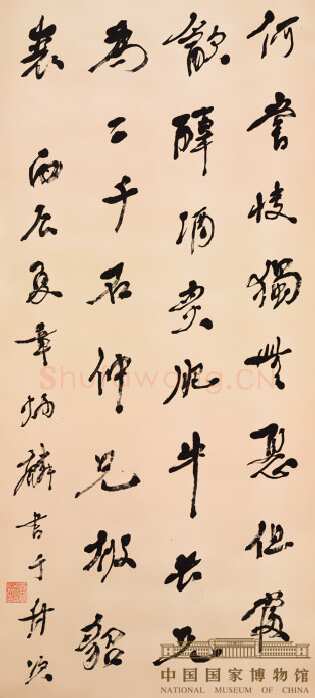 何嘗快獨無憂但復
飲醇酒炙肥牛長兄
為二千石仲兄被貂
裘 丙辰夏章炳麟書于次
Shufawang.CN
中国国家博物馆
NATIONAL MUSEUM OF CHINA